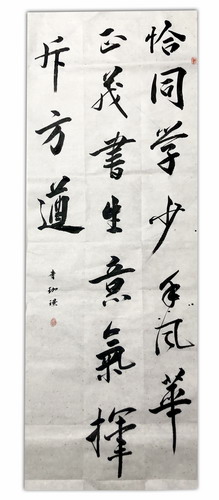 恰同学少年风華
正茂書生意氣揮
斥方遒